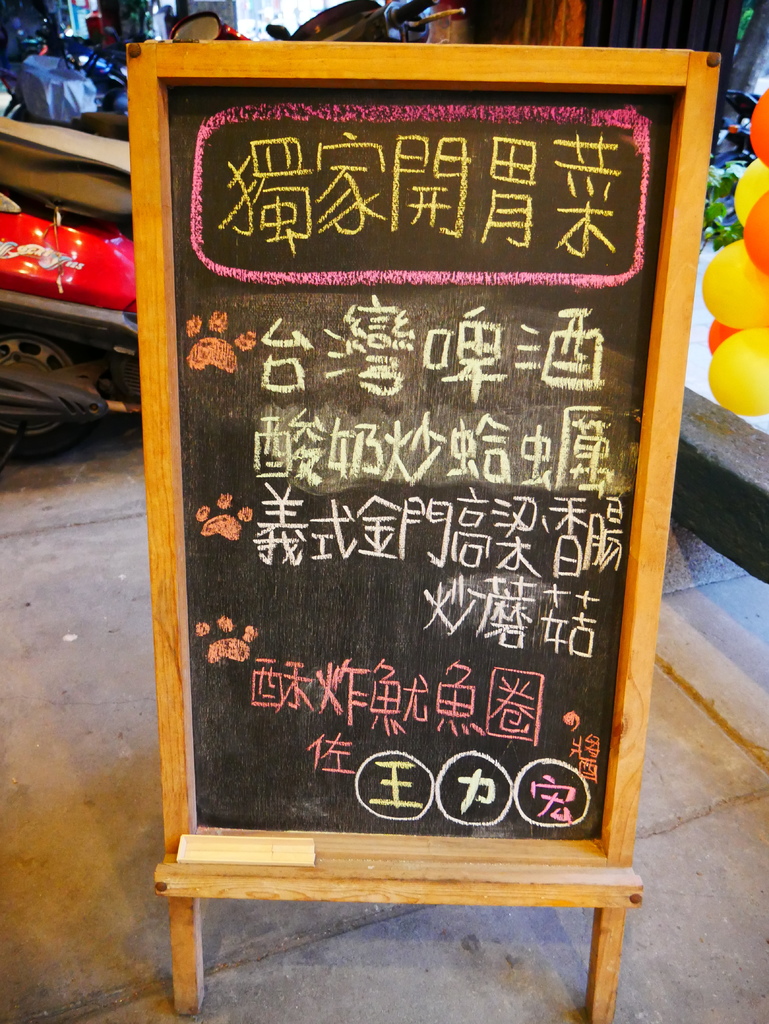 獨家開胃菜
台灣啤酒
酸奶炒蛤蠣
義式金門高梁香腸
炒蘑菇
酥炸魷魚圈
佐王力宏